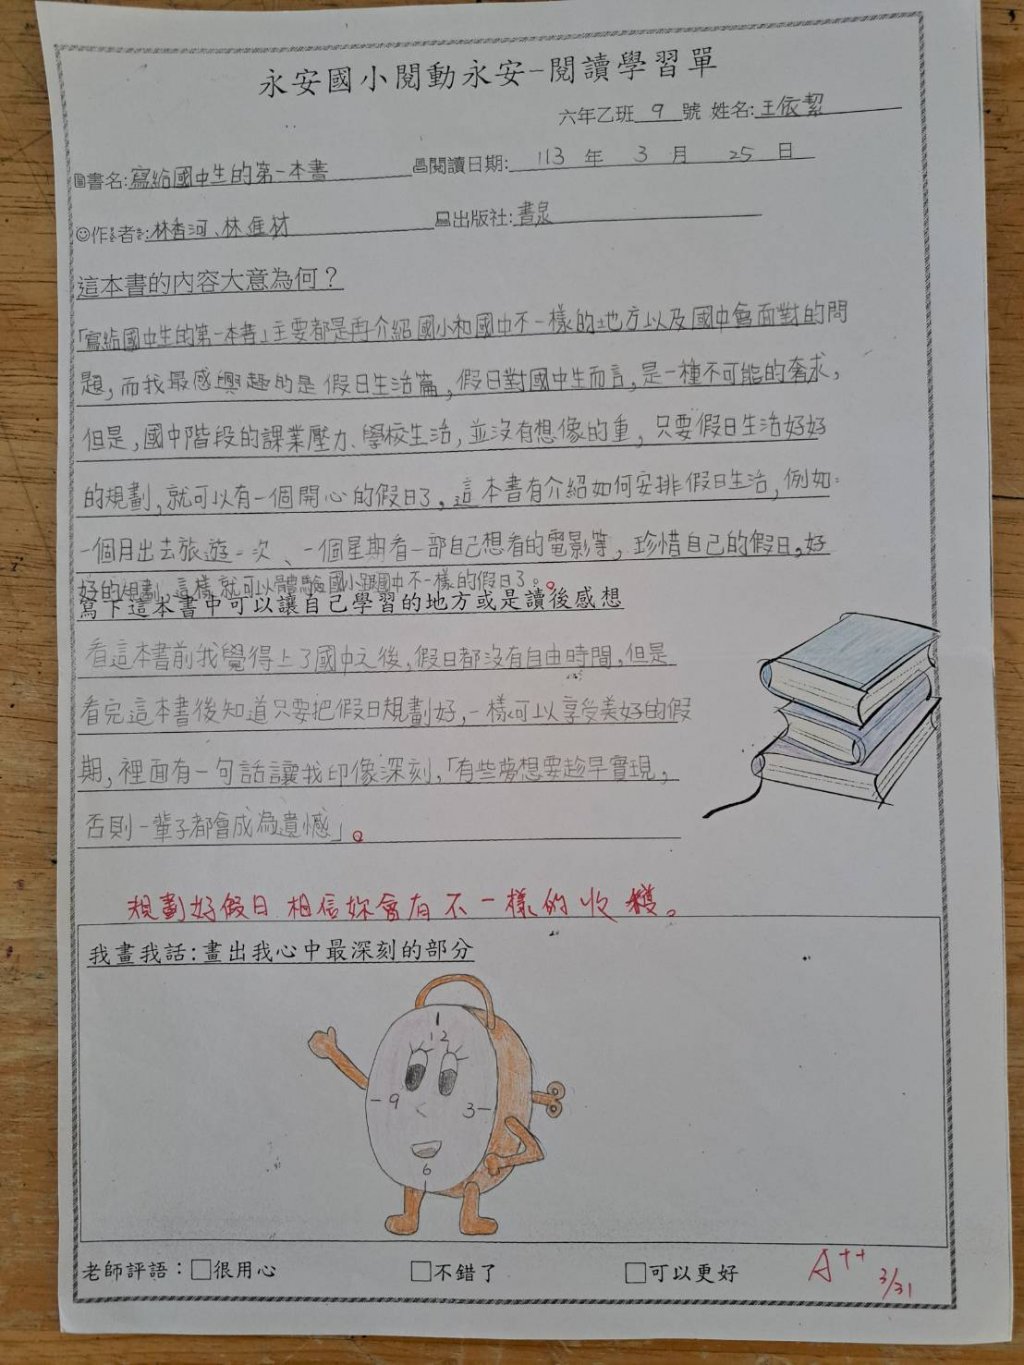 永安國小閱動永安-閱讀學習單
六年乙班 9 號 姓名:王依絜
書名:寫給國中生的第一本書 閱讀日期: 113 年 3 月 25 日
作者:林香河、林進材 出版社:書泉
這本書的內容大意為何？
「寫給國中生的第一本書」主要都是再介紹國小和國中不一樣的地方以及國中會面對的問
題,而我最感興趣的是假日生活篇,假日對國中生而言,是一種不可能的奢求,
但是,國中階段的課業壓力、學校生活,並沒有想像的重,只要假日生活好好
的規劃,就可以有一個開心的假日了。這本書有介紹如何安排假日生活,例如:
一個月出去旅遊一次、一個星期看一部自己想看的電影等,珍惜自己的假日,好
好的規劃,這樣就可以體驗國小跟國中不一樣的假日了。
寫下這本書中可以讓自己學習的地方或是讀後感想
看這本書前我覺得上了國中之後,假日都沒有自由時間,但是
看完這本書後知道只要把假日規劃好,一樣可以享受美好的假
期,裡面有一句話讓我印像深刻,「有些夢想要趁早實現,
否則一輩子都會成為遺憾」。
規劃好假日相信妳會有不一樣的收穫。
我畫我話:畫出我心中最深刻的部分
12
9 3
6
老師評語：□很用心 □不錯了 □可以更好 A++
3/31